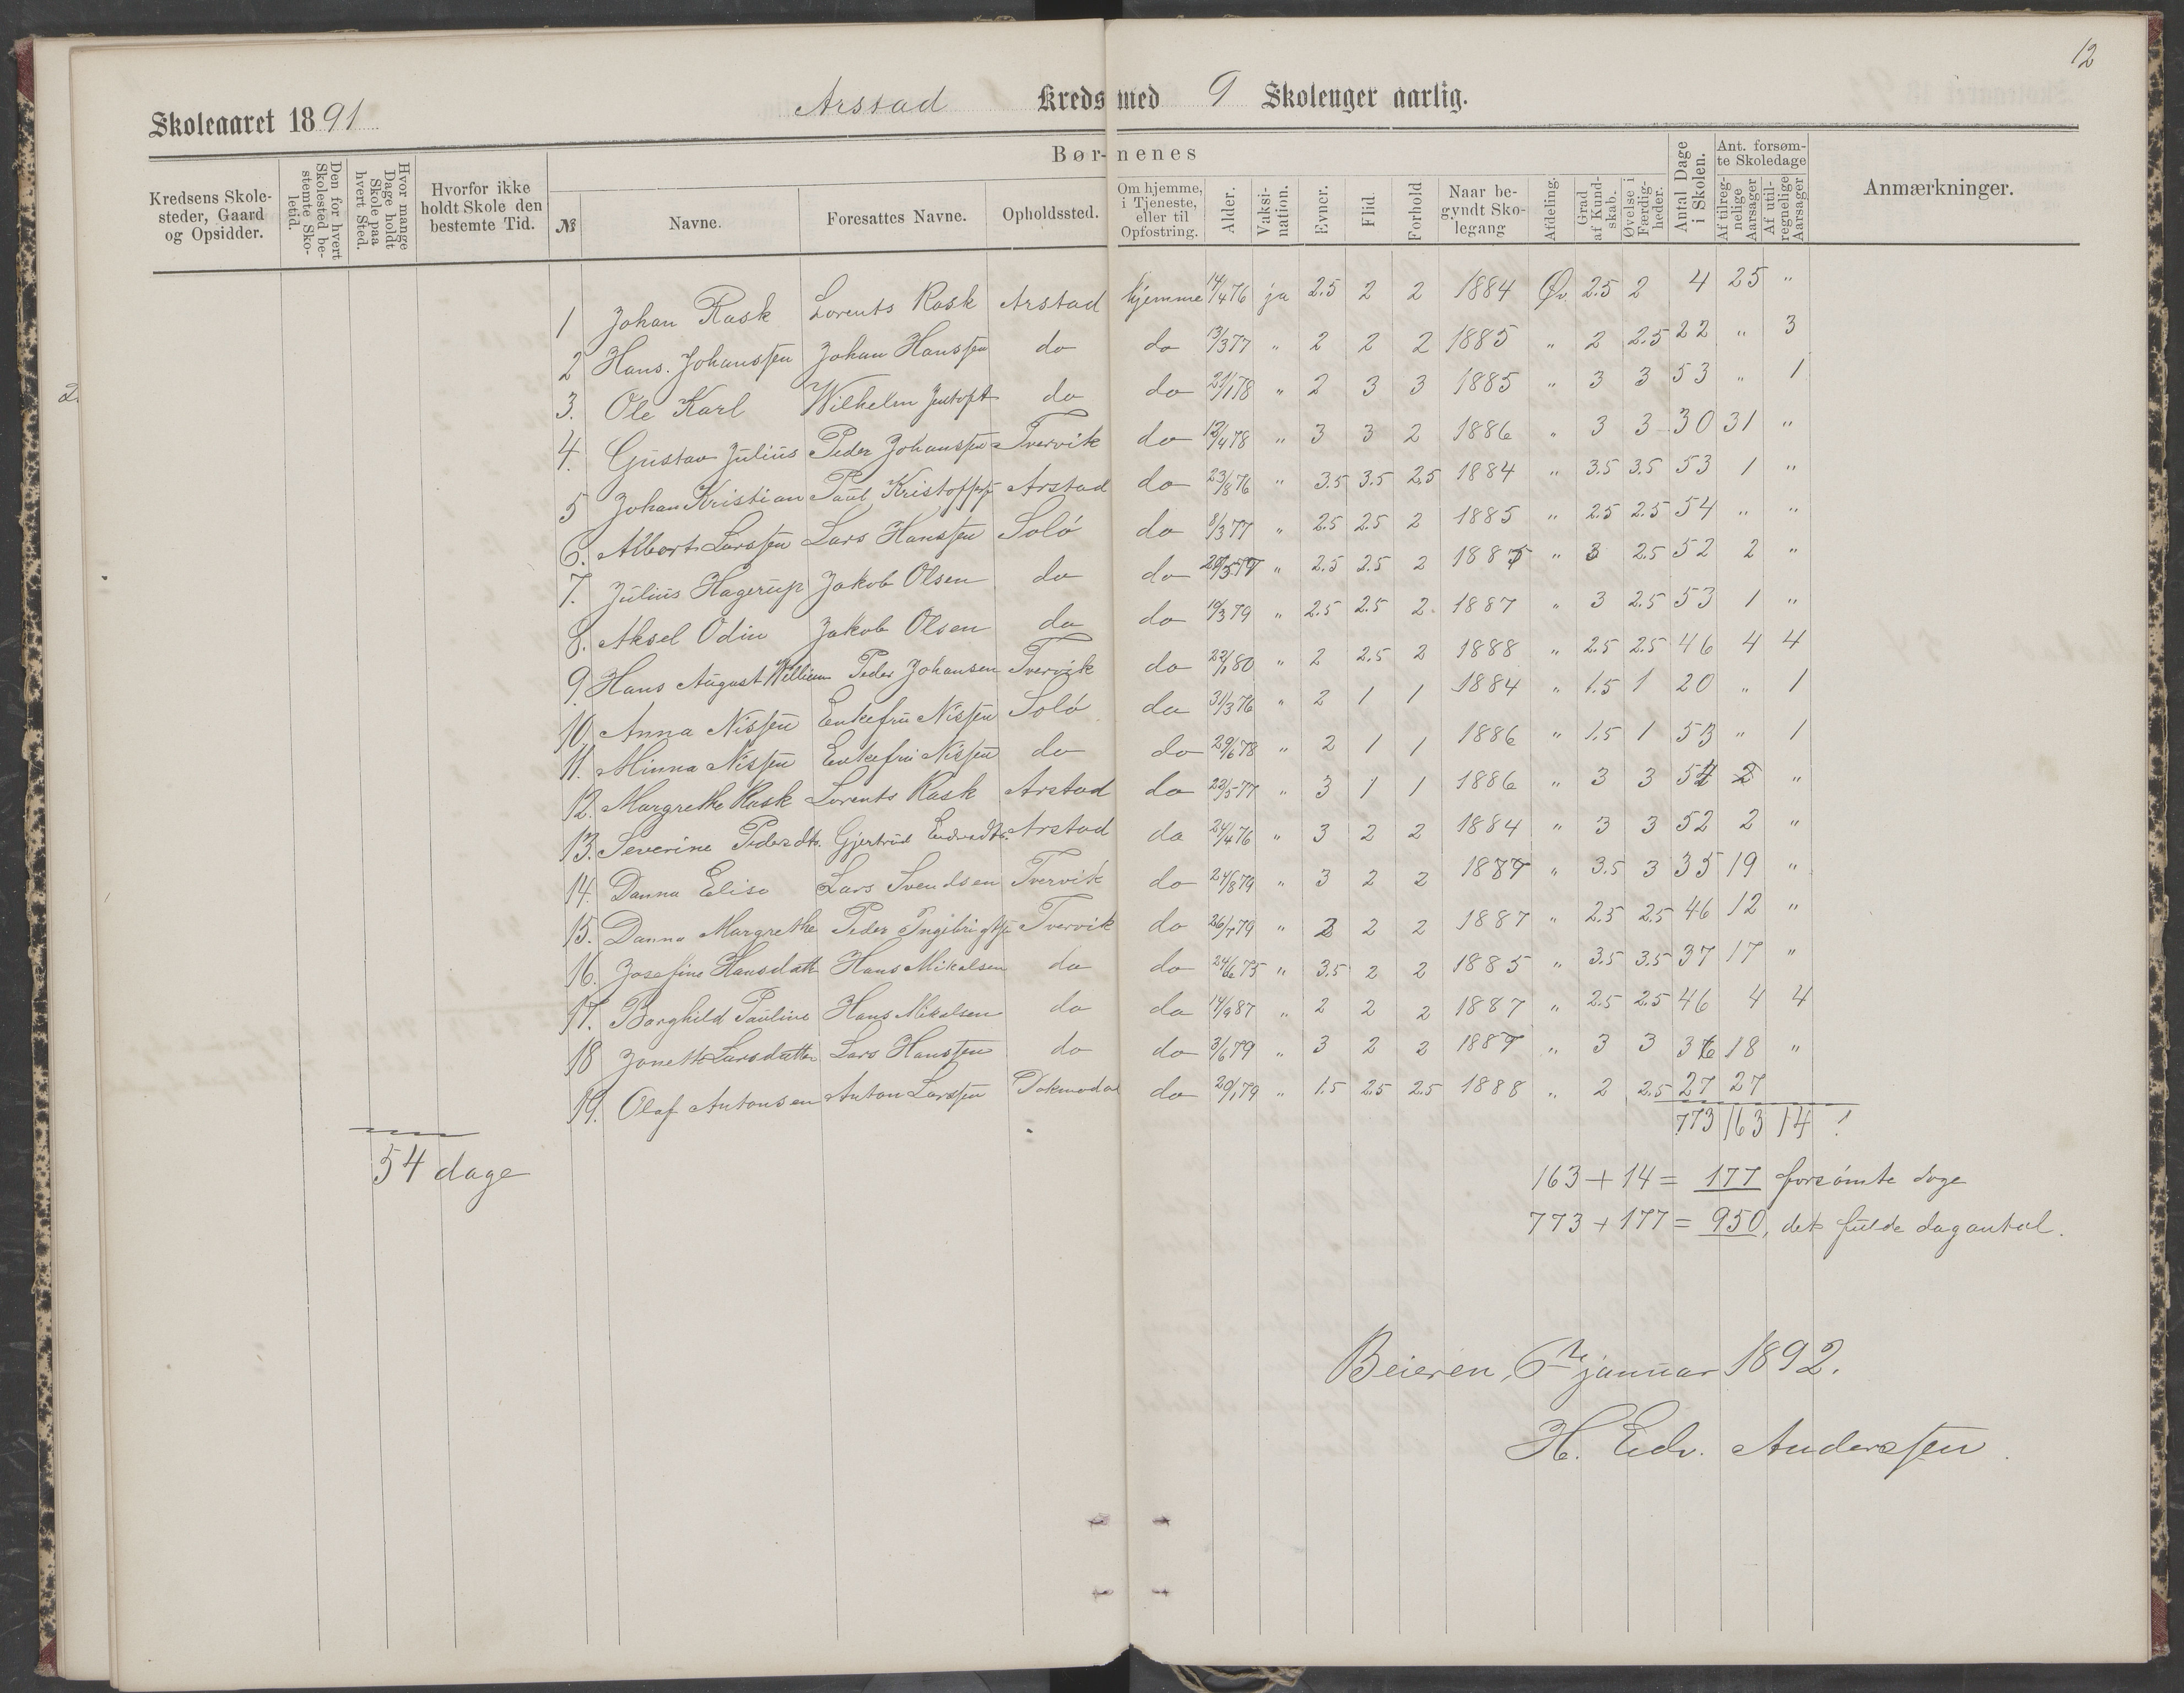 12
Skoleaaret 1891
Arstad Kreds med 9 Skoleuger aarlig.
Børnenes
Kredsens Skolesteder, Gaard og Opsidder.
Den for hvert Skolested bestemte Skoletid.
Hvor mange Dage holdt Skole paa hvert Sted.
Hvorfor ikke holdt Skole den bestemte Tid.
№
Navne.
Foresattes Navne.
Opholdssted.
Om hjemme, i Tjeneste, eller til Opfostring.
Alder.
Vaksination.
Evner.
Flid
Forhold
Naar begyndt Skolegang
Afdeling.
Grad af Kundskab.
Øvelse i Færdigheder.
Antal Dage i Skolen.
Ant. forsømte Skoledage
Af tilregnelige Aarsager
Af utilregnelige Aarsager
Anmærkninger.
1 Johan Rask Lorents Rask Arstad hjemme 14/4 76 ja 2.5 2 2 1884 Øv 2.5 2 4 25 "
2 Hans. Johanssen Johan Hanssen do do 13/3 77 " 2 2 2 1885 " 2 2.5 22 " 3
3. Ole Karl Wilhelm Jentoft do do 21/1 78 " 2 3 3 1885 " 3 3 53 " 1
4. Gustav Julius Peder Johanssen Tvervik do 12/4 78 " 3 3 2 1886 " 3 3 30 31 "
5 Johan Kristian Paul Kristoffers Arstad do 23/8 76 " 3.5 3.5 2.5 1884 " 3.5 3.5 53 1 "
6. Albert Larssen Lars Hanssen Solö do 8/3 77 " 2.5 2.5 2 1885 " 2.5 2.5 54 " "
7. Julius Hagerup Jakob Olsen do do 28/5 77 " 2.5 2.5 2 1885 " 3 2.5 52 2 "
8. Aksel Odin Jakob Olsen do do 19/3 79 " 2.5 2.5 2 1887 " 3 2.5 53 1 "
9. Hans August William Peder Johansen Tvervik do 22/1 80 " 2 2.5 2 1888 " 2.5 2.5 46 4 4
10. Anna Nissen Enkefru Nissen Solö do 31/3 76 " 2 1 1 1884 " 1.5 1 20 " 1
11. Minna Nissen Enkefru Nissen do do 29/6 78 " 2 1 1 1886 " 1.5 1 53 " 1
12. Margrethe Rask Lorents Rask Arstad do 22/5 77 " 3 1 1 1886 " 3 3 52 2 "
13. Severine Pedersdt. Gjertrud Arstad do 24/4 76 " 3 2 2 1884 " 3 3 52 2 "
14. Danna Elise Lars Svendsen Tvervik do 24/8 79 " 3 2 2 1887 " 3.5 3 35 19 "
15. Danna Margrethe Peder Ingebrigtsen Tvervik do 26/7 79 " 2 2 2 1887 " 2.5 2.5 46 12 "
16. Josefine Hansdatt Hans Mikalsen do do 24/6 75 " 3.5 2 2 1885 " 3.5 3.5 37 17 "
17. Borghild Pauline Hans Mikalsen do do 14/9 87 " 2 2 2 1887 " 2.5 2.5 46 4 4
18 Janette Larsdatter Lars Hanssen do do 3/6 79 " 3 2 2 1887 " 3 3 36 18 "
19. Olaf Antonsen Anton Larssen do 20/1 79 " 1.5 2.5 2.5 1888 " 2 2.5 27 27
773 163 14 !
54 dage
163 + 14 = 177 forsömte dage
773 + 177 = 950, det fulde dagantal.
Beieren, 6te januar 1892.
H. Edv. Anderssen.